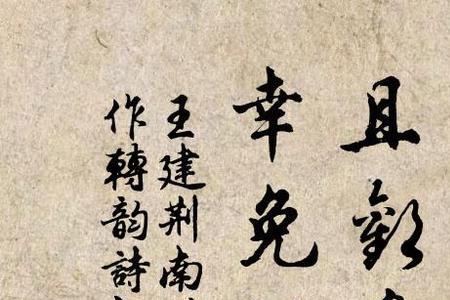 且勸
幸免
王建荆南
作轉韵詩